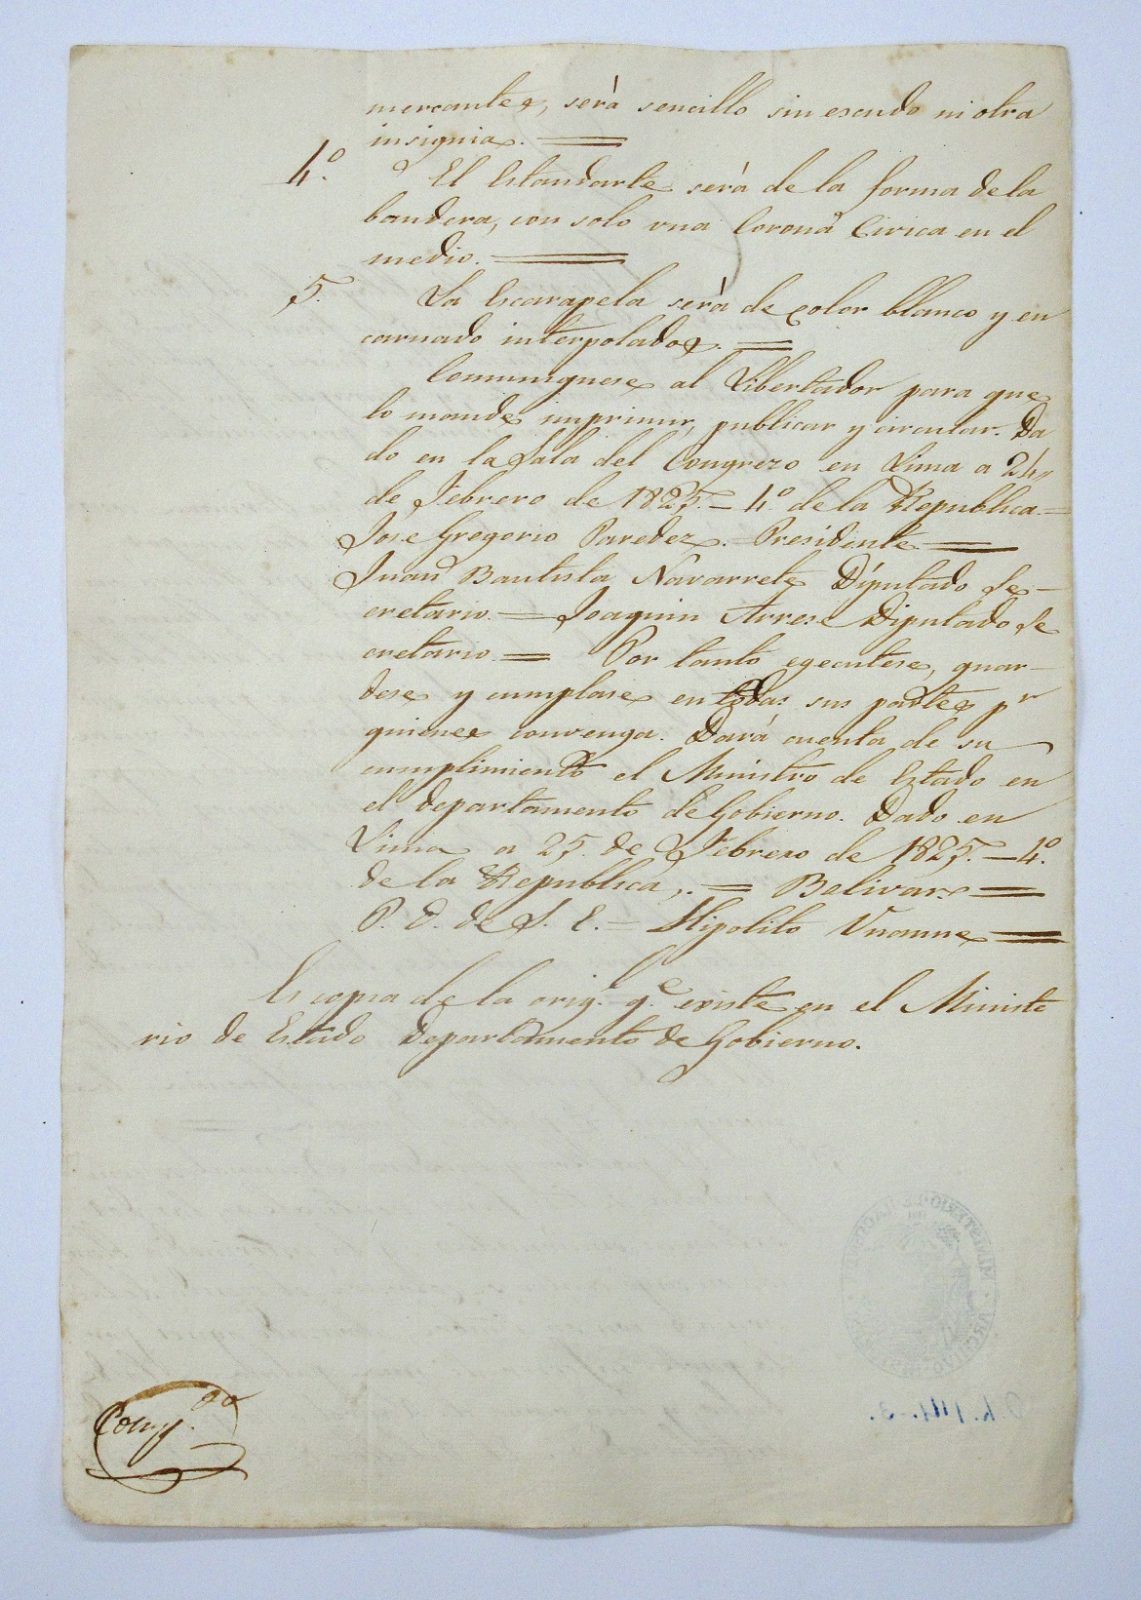 mercantes, será sencillo sin escudo ni otra
insignia. =
4.º El Estandarte será de la forma de la
bandera, con solo una Corona Civica en el
medio. =
5. La Escarapela será de color blanco y en
carnado interpolados. =
Comuniquese al Libertador para que
lo mande imprimir, publicar y circular. Da
do en la Sala del Congrezo en Lima a 24,,
de Febrero de 1825. - 4.º de la Republica. =
Jose Gregorio Paredez. = Presidente =
Juan Bautista Navarrete Diputado Se-
cretario = Joaquin Arrese Diputado Se
cretario = Por tanto egecutese, guar-
dese y cumplase en todas sus partes pr
quienes convenga. Dará cuenta de su
cumplimiento el Ministro de Estado en
el departamento de Gobierno. Dado en
Lima a 25. de Febrero de 1825. - 4.º
de la Republica,. = Bolivar. =
P. O. de S. E. = Hipolito Vnanue =
Es copia de la orig.l q.e existe en el Ministe
rio de Estado Departamento de Gobierno.